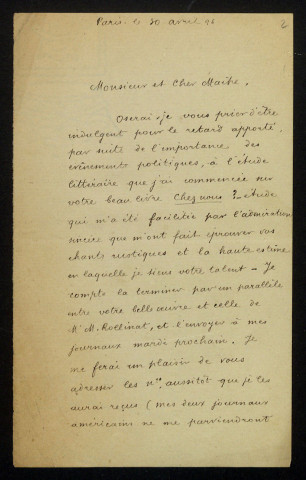 Paris le 30 avril 96
2
Monsieur et Cher Maître,
Oserai-je vous prier d'être
indulgent pour le retard apporté,
par suite de l'importance des
évènements politiques, à l'étude
littéraire que j'ai commencée sur
votre beau livre Chez nous ? - étude
qui m'a été facilitée par l'admiration
sincère que m'ont fait éprouver vos
chants rustiques et la haute estime
en laquelle je tiens votre talent - Je
compte la terminer par un parallèle
entre votre belle œuvre et celle de
Mr M. Rollinat, et l'envoyer à mes
journaux mardi prochain. Je
me ferai un plaisir de vous
adresser les nos aussitôt que je les
aurai reçus (mes deux journaux
américains ne me parviendront